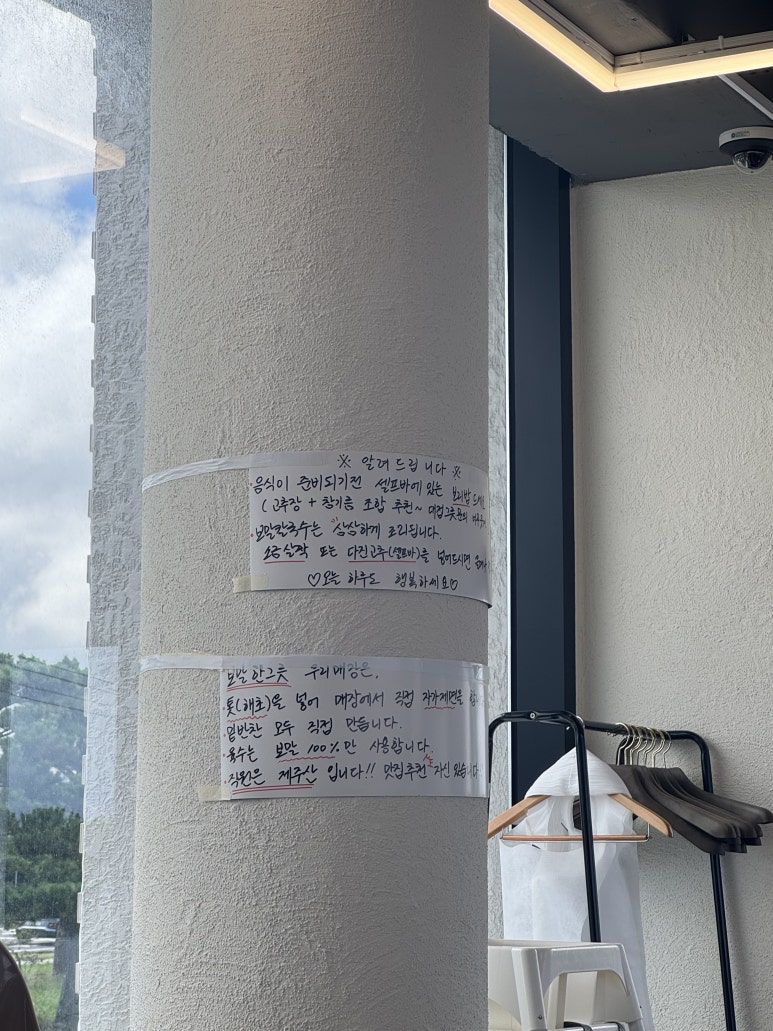 ※ 알려 드립니다 ※
· 음식이 준비되기전 셀프바에 있는 보리밥 드세요
( 고추장 + 참기름 조합 추천~
· 보말칼국수는 삼삼하게 조리됩니다.
소금살짝 또는 다진고추(셀프바)를 넣어드시면
♡오늘 하루도 행복하세요♡
보말한그릇 우리매장은,
· 톳(해초)을 넣어 매장에서 직접 자가제면을
· 밑반찬 모두 직접 만듭니다.
· 육수는 보말 100%만 사용합니다.
· 직원은 제주산 입니다!! 맛집추천 자신있습니다